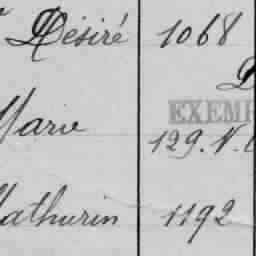 Désiré 1068
EXEM
Marie 129.N.
Mathurin 1192